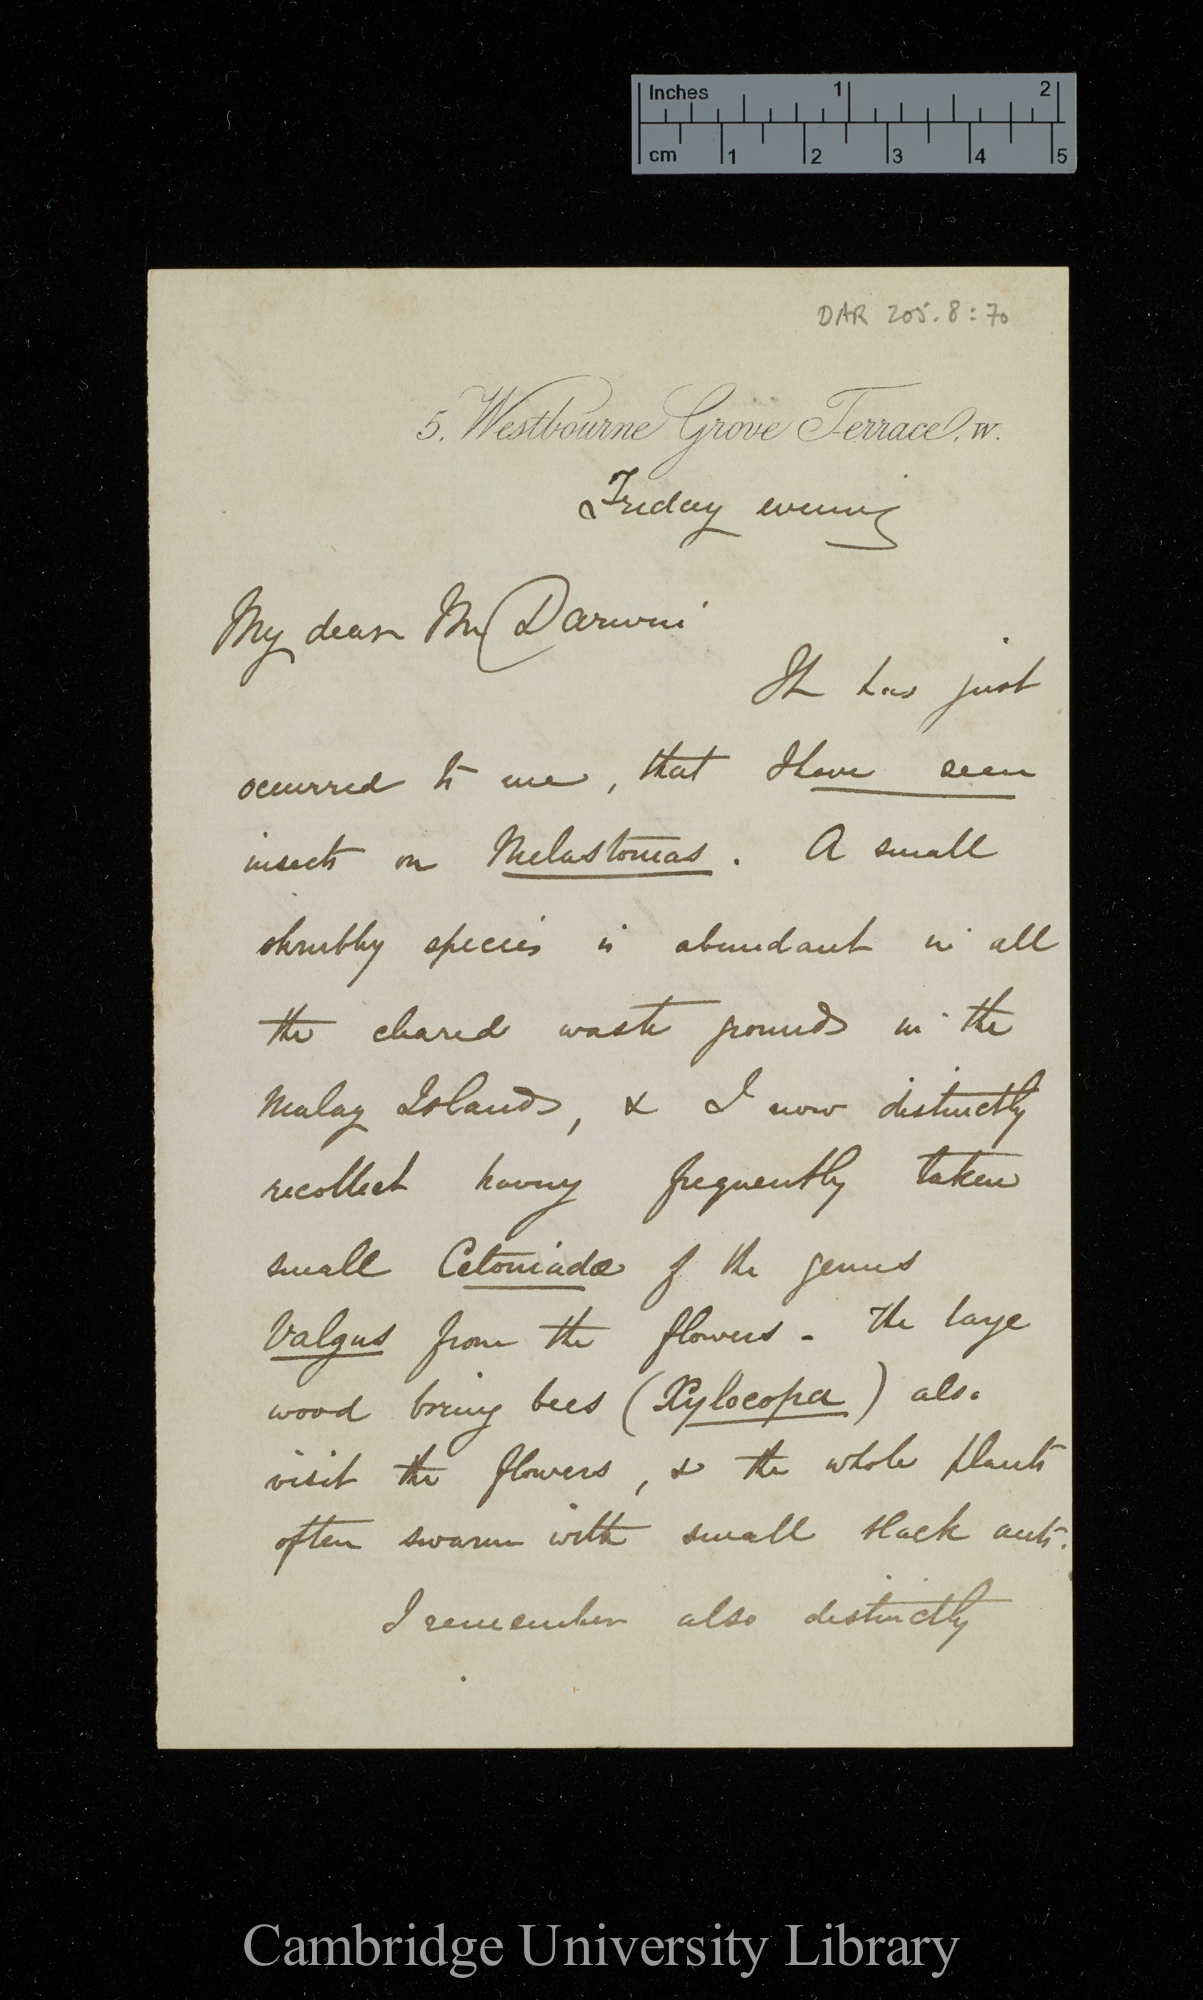 Inches 1 2
cm 1 2 3 4 5
DAR 205.8:70
5. Westbourne Grove Terrace, W.
Friday evening
My dear Mr Darwin
It has just
occurred to me, that I have seen
insects on Melastomas. A small
shrubby species is abundant in all
the cleared waste grounds in the
Malay Islands, & I now distinctly
recollect having frequently taken
small Cetoniadæ of the genus
Valgus from the flowers. The large
wood boring bees (Xylocopa) also
visit the flowers, & the whole plants
often swarm with small black ants.
I remember also distinctly
Cambridge University Library